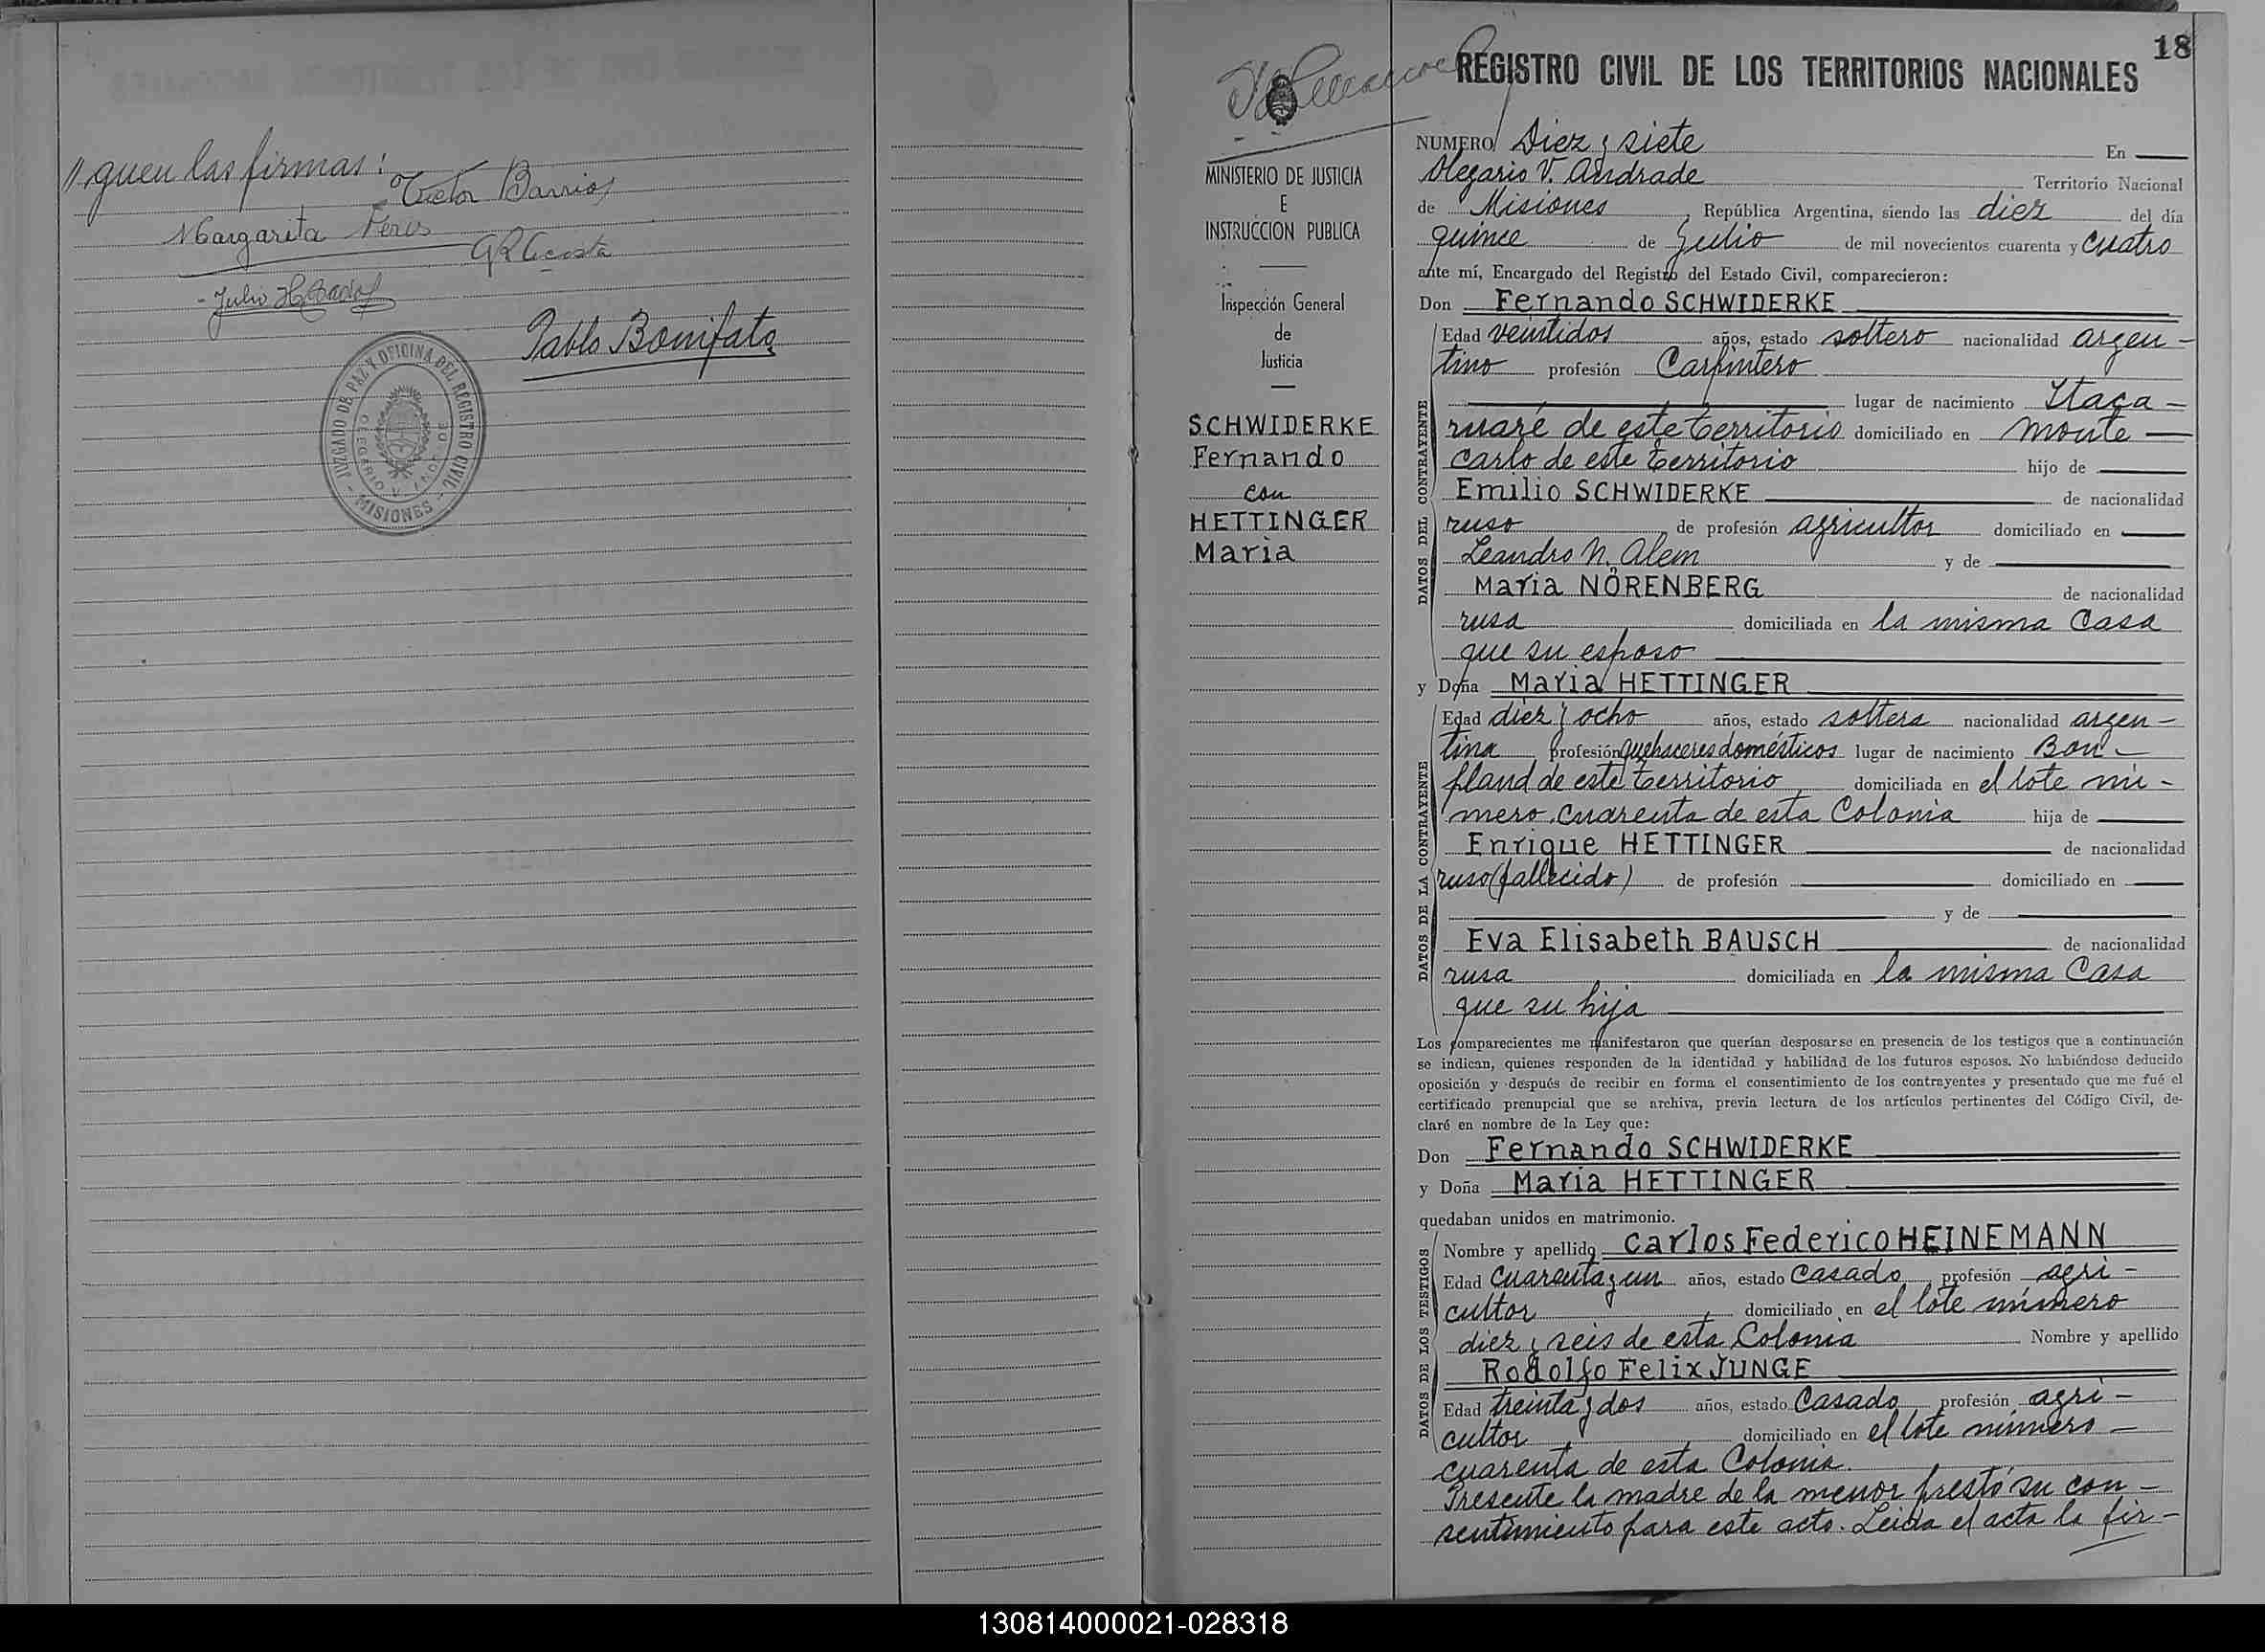 //guen las firmas:
Victor Barrios
Margarita Peres
G R Acosta
Julio H
Pablo Bonifato
JUZGADO DE PAZ Y OFICINA DEL REGISTRO CIVIL - MISIONES -
18
REGISTRO CIVIL DE LOS TERRITORIOS NACIONALES
MINISTERIO DE JUSTICIA
E
INSTRUCCIÓN PUBLICA
Inspección General
de
Justicia
SCHWIDERKE
Fernando
con
HETTINGER
Maria
NUMERO Diez y siete En
Olegario V. Andrade Territorio Nacional
de Misiones, República Argentina, siendo las diez del día
quince de Julio de mil novecientos cuarenta y cuatro
ante mí, Encargado del Registro del Estado Civil, comparecieron:
Don Fernando SCHWIDERKE
DATOS DEL CONTRAYENTE
Edad veintidos años, estado soltero nacionalidad argen-
tino profesión Carpintero
lugar de nacimiento Itaca-
ruaré de este territorio domiciliado en Monte
Carlo de este territorio hijo de
Emilio SCHWIDERKE de nacionalidad
ruso de profesión agricultor domiciliado en
Leandro N. Alem y de
Maria NÖRENBERG de nacionalidad
rusa domiciliada en la misma Casa
que su esposo
y Doña Maria HETTINGER
DATOS DE LA CONTRAYENTE
Edad diez y ocho años, estado soltera nacionalidad argen-
tina profesión quehaceres domésticos lugar de nacimiento Bon-
pland de este territorio domiciliada en el lote nú-
mero cuarenta de esta Colonia hija de
Enrique HETTINGER de nacionalidad
ruso (fallecido) de profesión domiciliado en
y de
Eva Elisabeth BAUSCH de nacionalidad
rusa domiciliada en la misma Casa
que su hija
Los comparecientes me manifestaron que querían desposarse en presencia de los testigos que a continuación
se indican, quienes responden de la identidad y habilidad de los futuros esposos. No habiéndose deducido
oposición y después de recibir en forma el consentimiento de los contrayentes y presentado que me fué el
certificado prenupcial que se archiva, previa lectura de los artículos pertinentes del Código Civil, de-
claré en nombre de la Ley que:
Don Fernando SCHWIDERKE
y Doña Maria HETTINGER
quedaban unidos en matrimonio.
DATOS DE LOS TESTIGOS
Nombre y apellido Carlos Federico HEINEMANN
Edad Cuarenta y un años, estado Casado profesión agri-
cultor domiciliado en el lote número
diez y seis de esta Colonia Nombre y apellido
Rodolfo Felix JUNGE
Edad treinta y dos años, estado Casado profesión agri-
cultor domiciliado en el lote número-
cuarenta de esta Colonia.
Presente la madre de la menor prestó su con-
sentimiento para este acto. Leida el acta la fir-
130814000021-028318